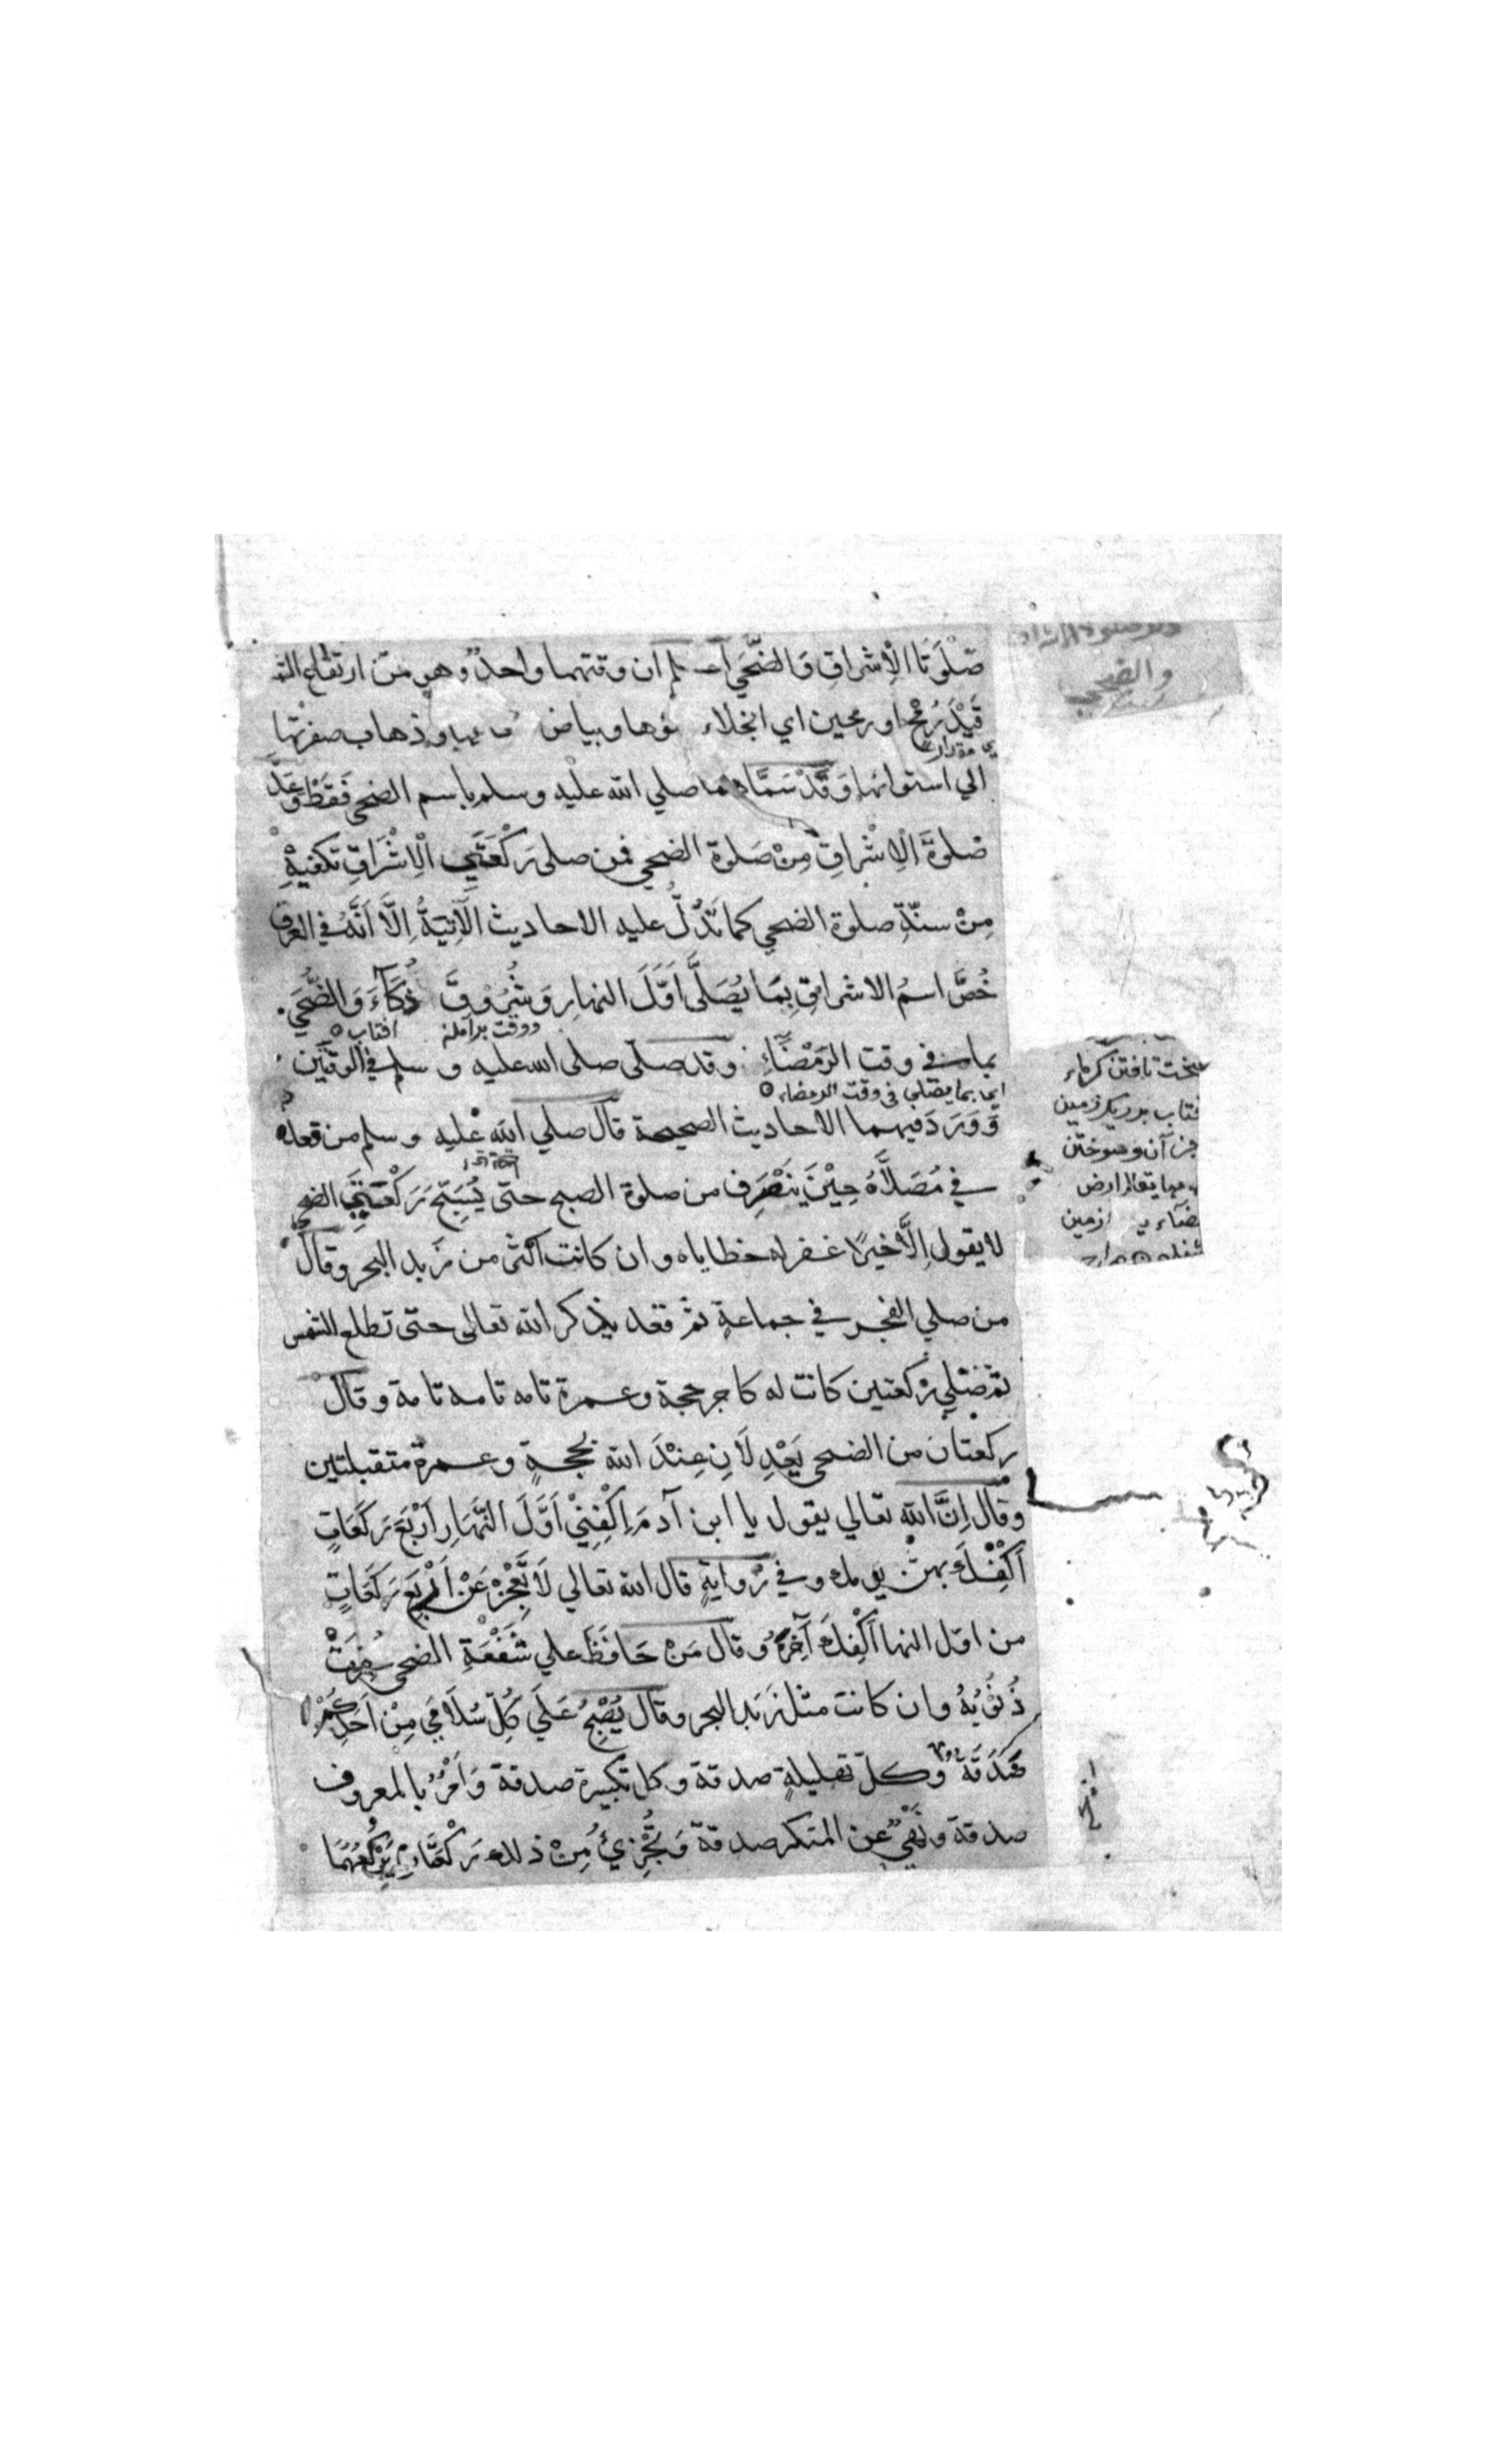 صَلٰوتَا الْاِشراقِ وَالضُّحٰي ان وقتهما واحدٌ وهو من ارتفاع
قَيْدَ رُمْحٍ او رمحين اي انجلاء وبياض وذهاب صفرتها
مقدار
الي استوائها وَقَدْ سَمَّاهما صلي الله عليه وسلم باسم الضحي فَقَطْ وَعَدَّ
صَلٰوةَ الْاِشْراقِ مِنْ صَلوة الضحي فمن صلي رَكْعَتَيِ الْاِشْرَاقِ تكفيهِ
مِنْ سنّةِ صلوة الضحي كما تَدُلُّ عليه الاحاديث الْآتِيَةُ اِلَّا اَنَّهُ في العرف
خُصَّ اسمُ الاشراقِ بِمَا يُصَلَّي اَوَّلَ النهار وَشُرُوْقَ ذُكَآءَ وَالضُّحَي
ووقت برآمدن افتاب
بما في وقت الرَمْضَآءِ وقد صلّي صلي الله عليه وسلم في الوقتين
اي بما يصلي في وقت الرمضاء
وَوَرَدَ فيهما الاحاديث الصحيحة قال صلي الله عليه وسلم من قعد
في مُصَلَّاهُ حِيْنَ يَنْصَرِف من صلوة الصبح حتي يُسَبِّحَ رَكْعَتَيِ الضحي
لا يقول اِلَّا خيرًا غفر له خطاياه وان كانت اكثر من زبد البحر وقال
من صلي الفجر في جماعةٍ ثم قعد يذكر الله تعالي حتي تطلع الشمس
ثم صلي ركعتين كانت له كاجر حجة وعمرة تامه تامه تامة وقال
ركعتان من الضحي يَعْدِلَانِ عِنْدَ الله بحجةٍ وعمرة متقبلتين
وقال اِنَّ الله تعالي يقول يا ابن آدمَ اِكْفِنِيْ اَوَّلَ النَّهَارِ اَرْبَعَ رَكَعَاتٍ
اَكْفِكَ بهن يومك وفي رواية قال الله تعالي لَا تَعْجِزْ عَنْ اَرْبَعِ رَكَعَاتٍ
من اول النها اَكْفِكَ آخِرَهُ وقال مَنْ حَافَظَ علي شَفْعَةِ الضحي غُفِرَتْ
ذُنُوْبُهُ وان كانت مثل زَبَدِ البحر وقال يُصْبِحُ عَلَي كُلِّ سُلَامَي مِنْ اَحَدِكُمْ
صَدَقَةٌ وكلّ تهليلةٍ صدقة وكل تكبيرة صدقة وَاَمْرٌ بالمعروف
صدقة ونَهْيٌ عن المنكر صدقة وَيُجْزِئُ مِنْ ذلك رَكْعَتَانِ يَرْكَعُهُمَا
والضحي
سخت تافتن كرماء
فتاب بر ريك زمين
جز آن وسوختن
يقال ارض
ازمين